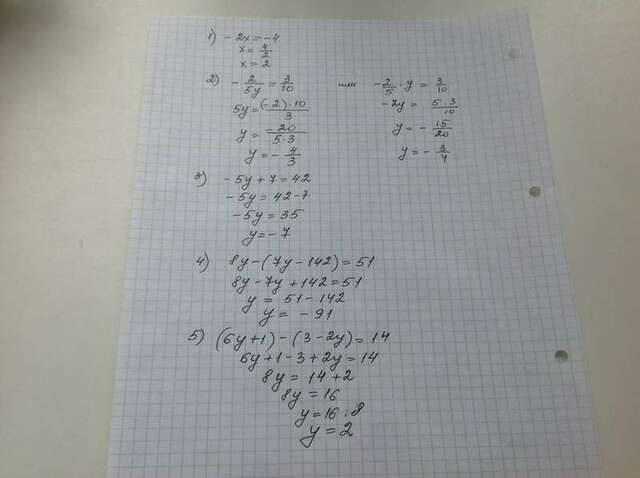 1) -2x = -4
x = 4/2
x = 2
2) - 2/5y = 3/10 или - 2/5 · y = 3/10
5y = (-2)·10/3 -2y = 5·3/10
y = -20/5·3 y = - 15/20
y = - 4/3 y = - 3/4
3) -5y + 7 = 42
-5y = 42-7
-5y = 35
y = -7
4) 8y-(7y-142) = 51
8y-7y+142 = 51
y = 51-142
y = -91
5) (6y+1)-(3-2y) = 14
6y+1-3+2y = 14
8y = 14+2
8y = 16
y = 16:8
y = 2